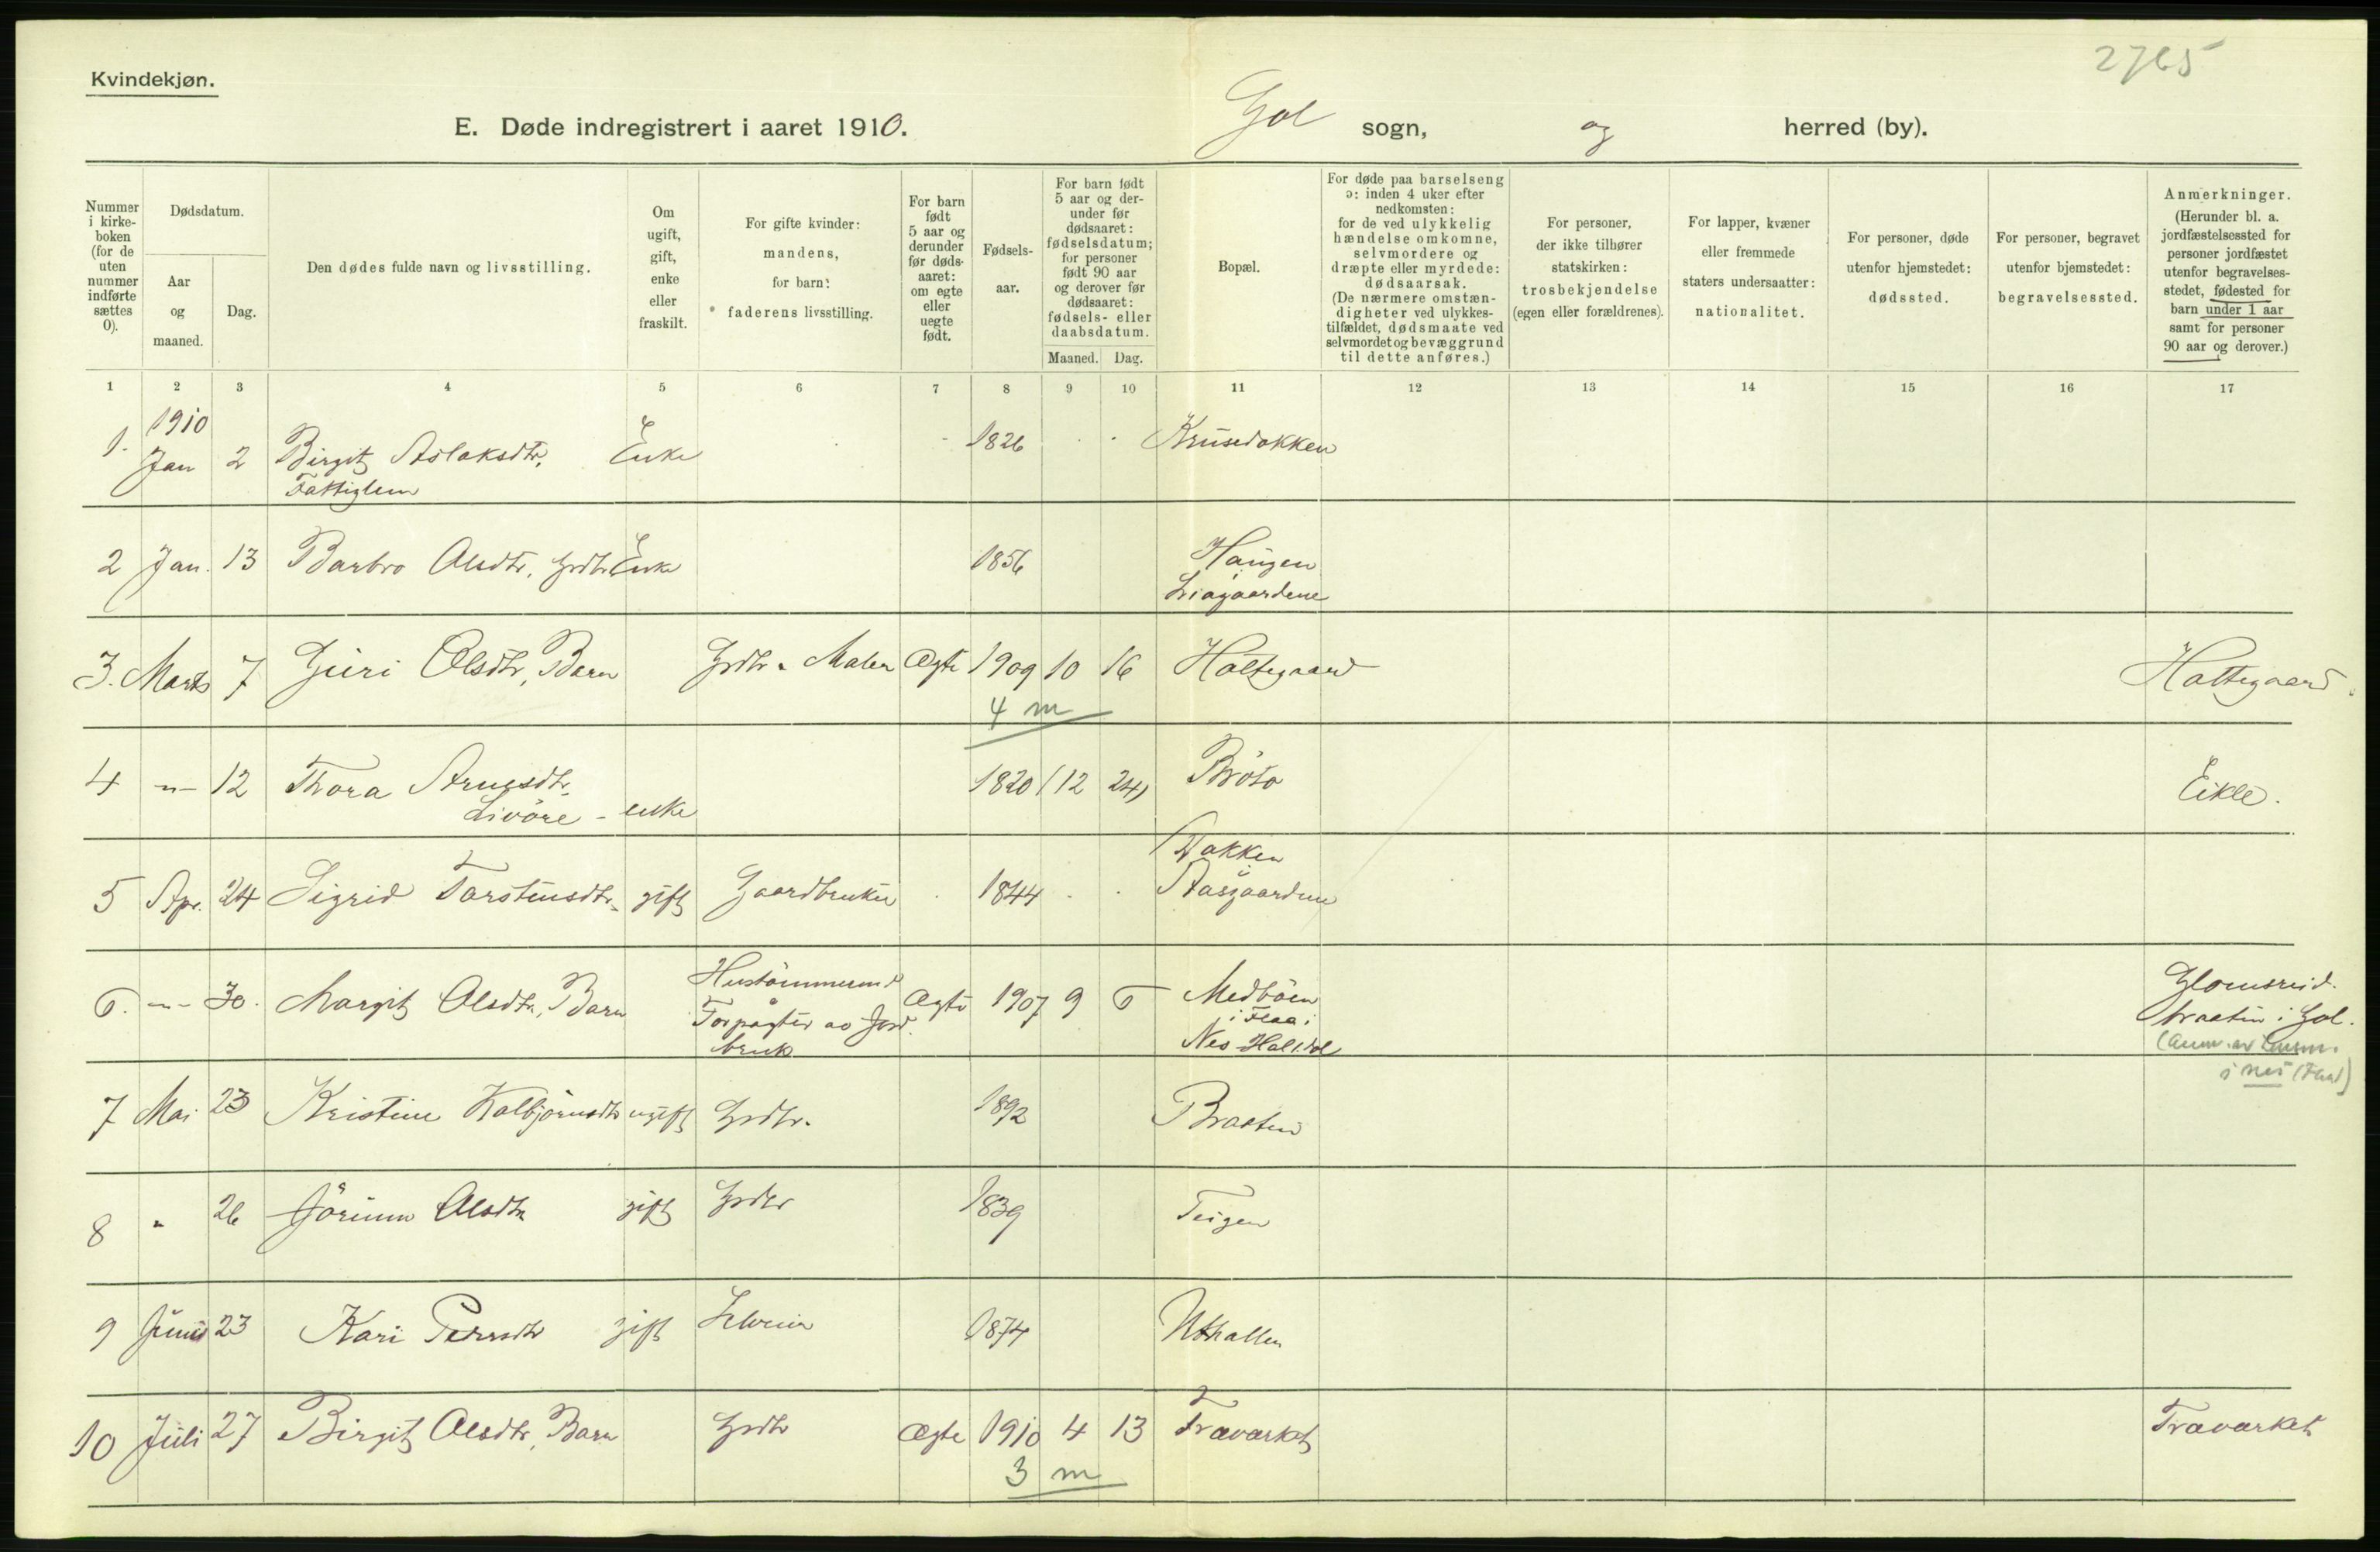 2765
Kvindekjøn.
E. Døde indregistrert i aaret 1910. Gol sogn, og herred (by).
Nummer i kirke-boken (for de uten nummer indførte sættes 0).
Dødsdatum.
Aar og maaned.
Dag.
Den dødes fulde navn og livsstilling.
Om ugift, gift, enke eller fraskilt.
For gifte kvinder: mandens, for barn: faderens livsstilling.
For barn født 5 aar og derunder før døds-aaret: om egte eller uegte født.
Fødsels-aar.
For barn født 5 aar og der-under før dødsaaret: fødselsdatum; for personer født 90 aar og derover før dødsaaret: fødsels- eller daabsdatum.
Maaned. Dag.
Bopæl.
For døde paa barselseng ɔ: inden 4 uker efter nedkomsten: for de ved ulykkelig hændelse omkomne, selvmordere og dræpte eller myrdede: dødsaarsak. (De nærmere omstæn-digheter ved ulykkes-tilfældet, dødsmaate ved selvmordet og bevæggrund til dette anføres.)
For personer, der ikke tilhører statskirken: trosbekjendelse (egen eller forældrenes).
For lapper, kvæner eller fremmede staters undersaatter: nationalitet.
For personer, døde utenfor hjemstedet: dødssted.
For personer, begravet utenfor hjemstedet: begravelsessted.
Anmerkninger. (Herunder bl. a. jordfæstelsessted for personer jordfæstet utenfor begravelses-stedet, fødested for barn under 1 aar samt for personer 90 aar og derover.)
1 2 3 4 5 6 7 8 9 10 11 12 13 14 15 16 17
1910
1. Jan 2 Birgit Aslaksdtr. Enke 1826 Krusedokken
Fattiglem
2 Jan. 13 Barbro Olsdtr. Grdbr Enke 1856 Haugen
Liagaardene
3. Marts 7 Guri Olsdtr, Barn Grdbr & Maler Ægte 1909 10 16 Holtegaard Holtegaard.
4 m
4 -"- 12 Thora Arnesdtr. 1820 (12 24) Bröto Eikle.
Livöre - enke
5 Apr. 24 Sigrid Torsteinsdtr. gift Gaardbruker 1844 Bakken
Aasgaardene
6. -"- 30. Margit Olsdtr, Barn Hustömmermd Ægte 1907 9 6 Medböen Glomsreid.
Forpagter av Jord. i Flaa i braaten i Gol.
bruk Nes Hallidal (anm. av
i Nes (Flaa)
7 Mai 23 Kristine Kolbjørnsdtr ugift Grdbr. 1892 Braaten
8 " 26 Jörunn Olsdtr gift Grdbr 1839 Teigen
9 Juni 23 Kari Persdtr gift 1874
10 Juli 27 Birgit Olsdtr, Barn Grdbr Ægte 1910 4 13 Travarket Travarket
3 m